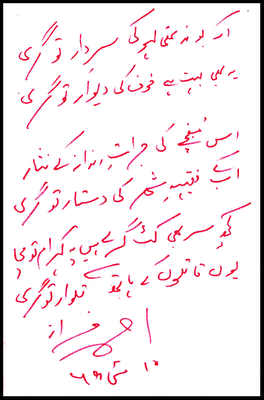 اک بوند تھی لہو کی سرِ دار تو گری
یہ بھی بہت ہے خوف کی دیوار تو گری
اس مُغبچے کی جراتِ رندانہ کے نثار
اب کے فقیہہِ شہر کی دستار تو گری
کچھ سر بھی کٹ گرے ہیں پہ کہرام تو مچا
یوں قاتلوں کے ہاتھ سے تلوار تو گری
احمد فراز
مئی